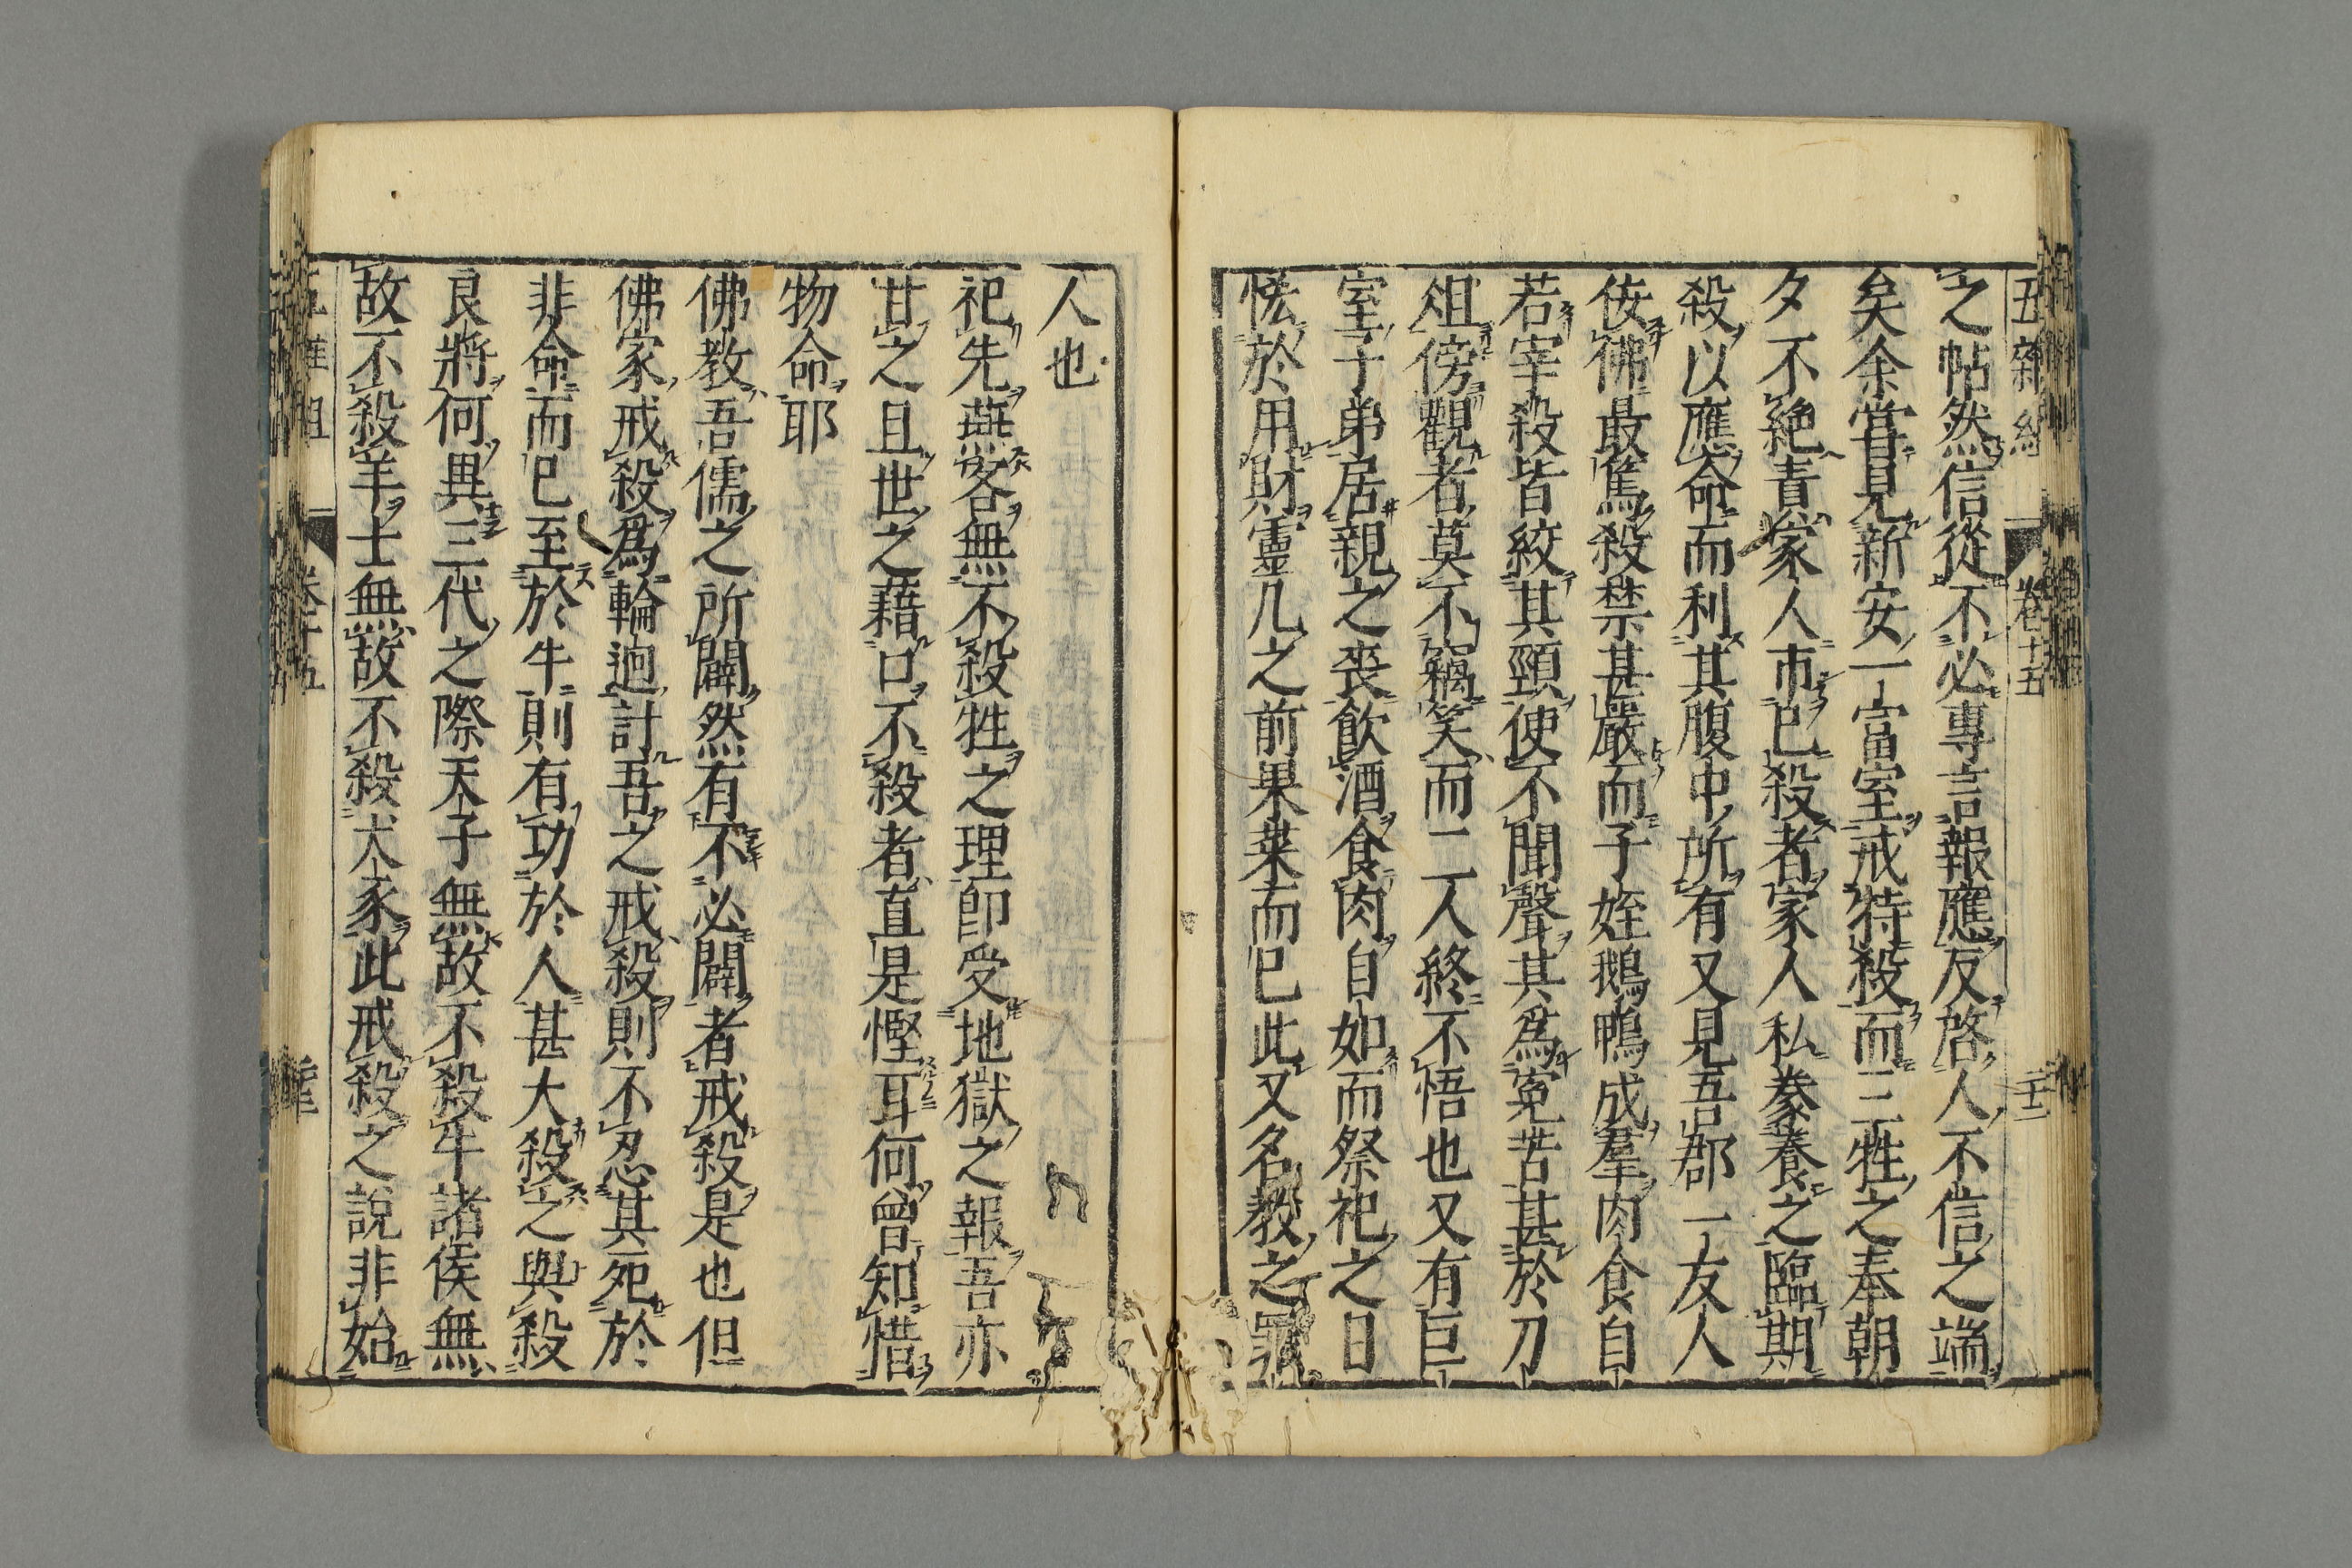 五雜組 卷十五
之帖然信從不必專言報應反啓人不信之端
矣余嘗見新安一富室戒特殺而三牲之奉朝
夕不絶責家人市已殺者家人私豢養之臨期
殺以應命而利其腹中所有又見吾郡一友人
佞佛最篤殺禁甚嚴而子姪鵝鴨成羣肉食自
若宰殺皆絞其頸使不聞聲其爲寃苦甚於刀
俎傍觀者莫不竊笑而二人終不悟也又有巨
室子弟居親之喪飲酒食肉自如而祭祀之日
恡於用財靈几之前果菜而已此又名教之罪
人也
祀先燕客無不殺牲之理卽受地獄之報吾亦
甘之且世之藉口不殺者直是慳耳何曾知惜
物命耶
佛教吾儒之所闢然有不必闢者戒殺是也但
佛家戒殺爲輪迴計吾之戒殺則不忍其死於
非命而已至於牛則有功於人甚大殺之與殺
良將何異三代之際天子無故不殺牛諸侯無
故不殺羊士無故不殺犬豕此戒殺之說非始